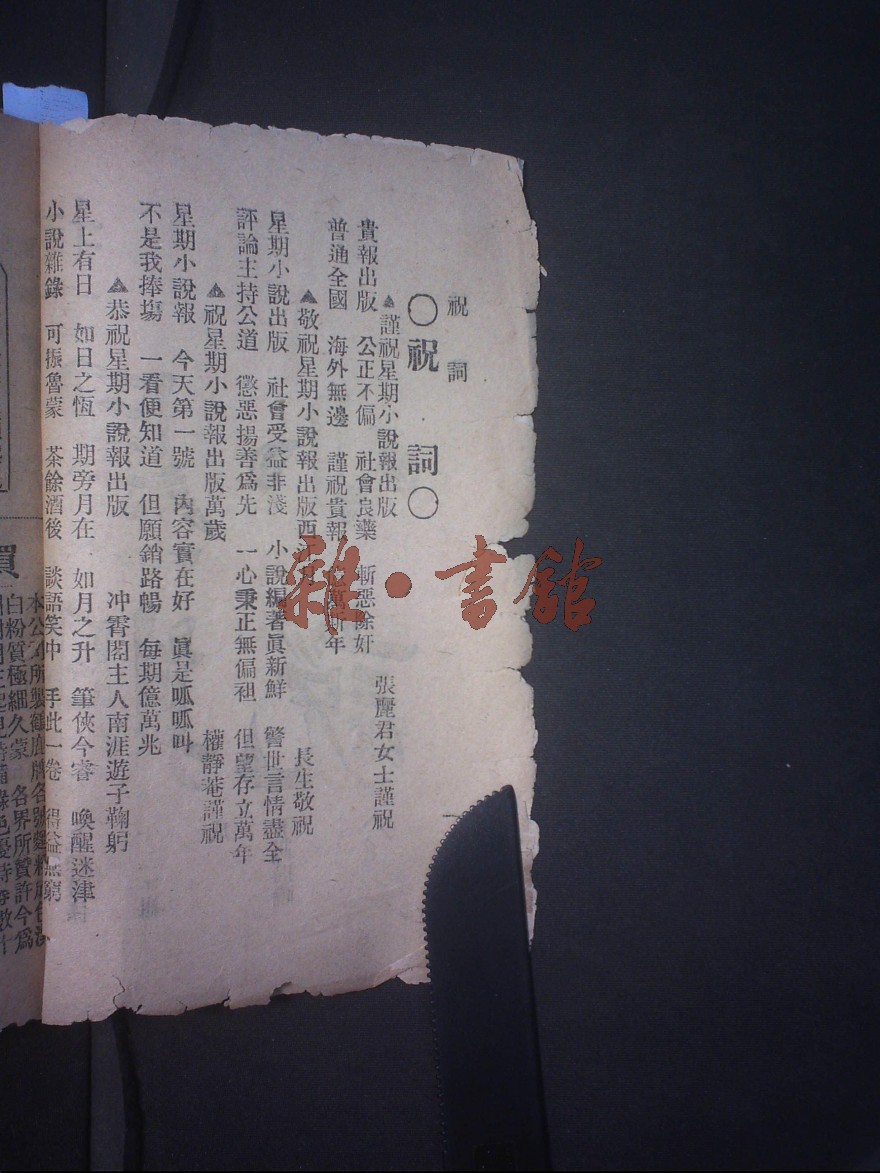 祝　詞
○祝　詞○
▲謹祝星期小說報出版　張麗君女士謹祝
貴報出版　公正不偏　社會良藥　斬惡除奸
普通全國　海外無邊　謹祝貴報　年
▲敬祝星期小說報出版西　長生敬祝
星期小說出版　社會受益非淺　小說編著眞新鮮　警世言情盡全
評論主持公道　懲惡揚善爲先　一心秉正無偏袒　但望存立萬年
▲祝星期小說報出版萬歲　權靜菴謹祝
星期小說報　今天第一號　內容實在好　眞是呱呱叫
不是我捧塲　一看便知道　但願銷路暢　每期億萬兆
▲恭祝星期小說報出版　冲霄閣主人南涯遊子鞠躬
星上有日　如日之恆　期旁月在　如月之升　筆俠今睿　喚醒迷津
小說雜錄　可振魯蒙　茶餘酒後　談語笑中　手此一卷　得益無窮
本公司所製
白粉質極細久蒙　各界所贊許今爲
雜·書館